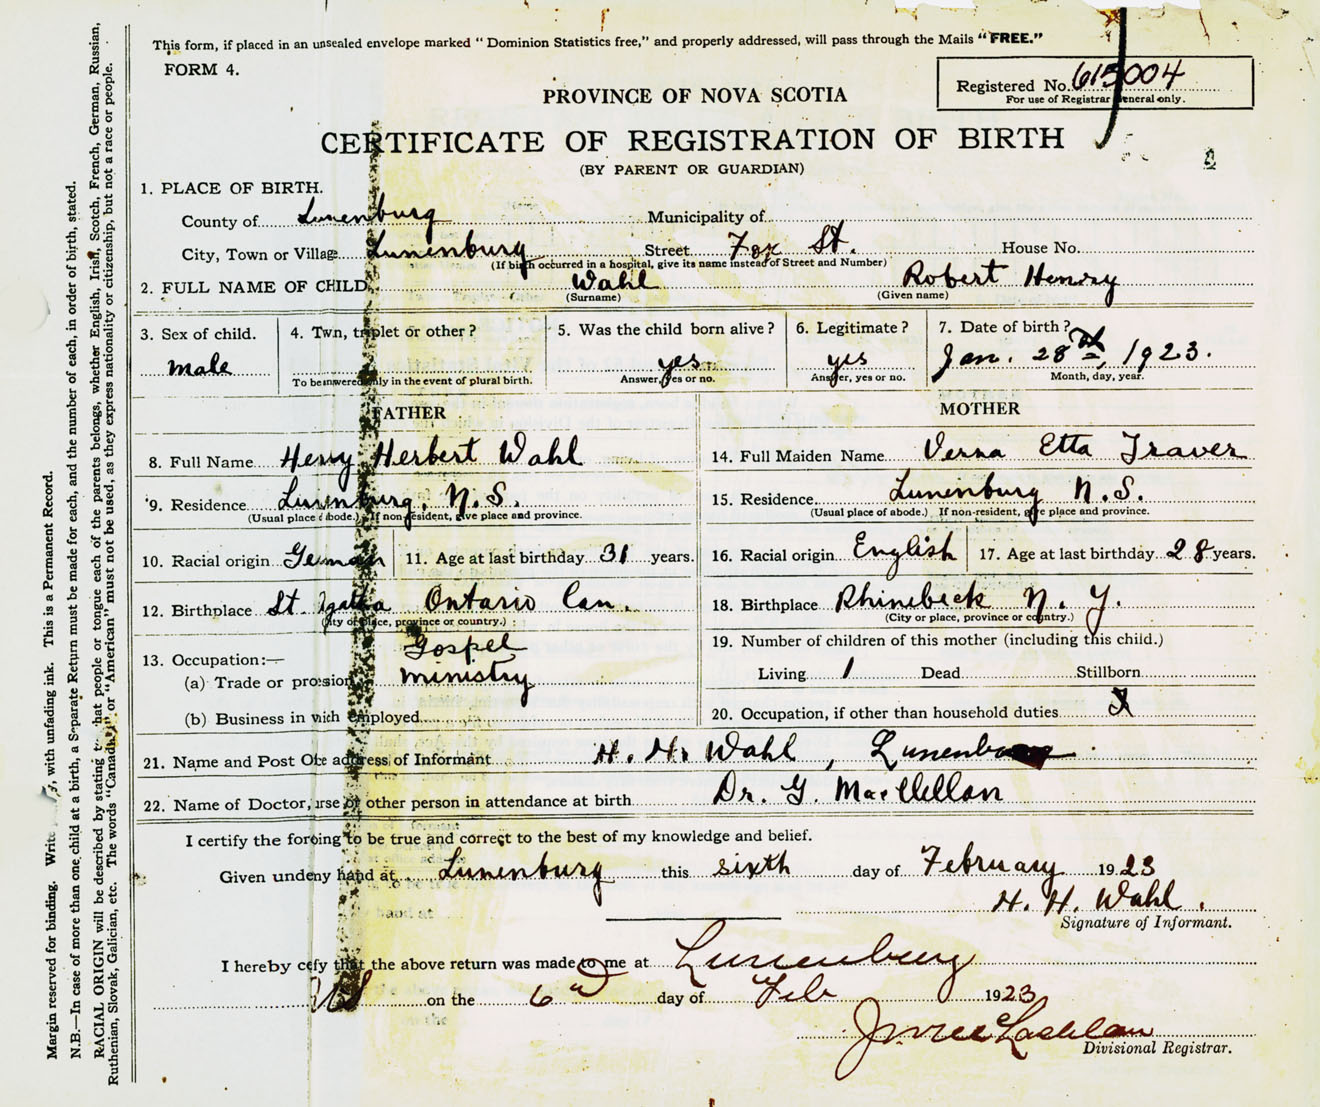 This form, if placed in an unsealed envelope marked "Dominion Statistics free," and properly addressed, will pass through the Mails "FREE."
FORM 4.
Registered No. 615004
For use of Registrar General only.
PROVINCE OF NOVA SCOTIA
CERTIFICATE OF REGISTRATION OF BIRTH
(BY PARENT OR GUARDIAN)
1. PLACE OF BIRTH.
County of Lunenburg Municipality of
City, Town or Village Lunenburg Street Fox St. House No.
(If birth occurred in a hospital, give its name instead of Street and Number)
2. FULL NAME OF CHILD Wahl Robert Henry
(Surname) (Given name)
3. Sex of child. male
4. Twn, triplet or other?
To be answered only in the event of plural birth.
5. Was the child born alive? yes
Answer, yes or no.
6. Legitimate? yes
Answer, yes or no.
7. Date of birth?
Jan. 28th, 1923.
Month, day, year.
FATHER
8. Full Name Henry Herbert Wahl
9. Residence Lunenburg, N.S.
(Usual place of abode.) If non-resident, give place and province.
10. Racial origin German 11. Age at last birthday 31 years.
12. Birthplace St. Agatha Ontario Can.
(City or place, province or country.)
13. Occupation:—
(a) Trade or profession Gospel ministry
(b) Business in which employed
MOTHER
14. Full Maiden Name Verna Etta Traver
15. Residence Lunenburg N.S.
(Usual place of abode.) If non-resident, give place and province.
16. Racial origin English 17. Age at last birthday 28 years.
18. Birthplace Rhinebeck N. Y.
(City or place, province or country.)
19. Number of children of this mother (including this child.)
Living 1 Dead Stillborn
20. Occupation, if other than household duties
21. Name and Post Office address of Informant H. H. Wahl, Lunenburg
22. Name of Doctor, nurse or other person in attendance at birth Dr. G. MacClellan
I certify the foregoing to be true and correct to the best of my knowledge and belief.
Given under my hand at Lunenburg this sixth day of February 1923
H. H. Wahl.
Signature of Informant.
I hereby certify that the above return was made to me at Lunenburg
N S on the 6th day of Feb 1923
Divisional Registrar.
Margin reserved for binding. Write with unfading ink. This is a Permanent Record.
N.B.—In case of more than one child at a birth, a Separate Return must be made for each, and the number of each, in order of birth, stated.
RACIAL ORIGIN will be described by stating to what people or tongue each of the parents belongs, whether English, Irish, Scotch, French, German, Russian,
Ruthenian, Slovak, Galician, etc. The words "Canadian" or "American" must not be used, as they express nationality or citizenship, but not a race or people.